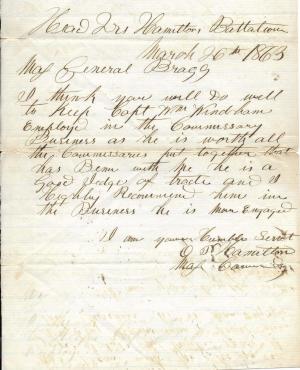 Head Qrs Hamiltons Battalion
March 26th 1863
Maj General Bragg
I think you will do well
to Keep Capt Wm Windham
Employed in the Commissary
Buisness as he is worth all
the Commissaries put together that
has Been with me he is a
Good Judge of and I
Highly Recommend him in
the Buisness he is now Engaged
I am your Humble Servt
O P Hamilton
Maj